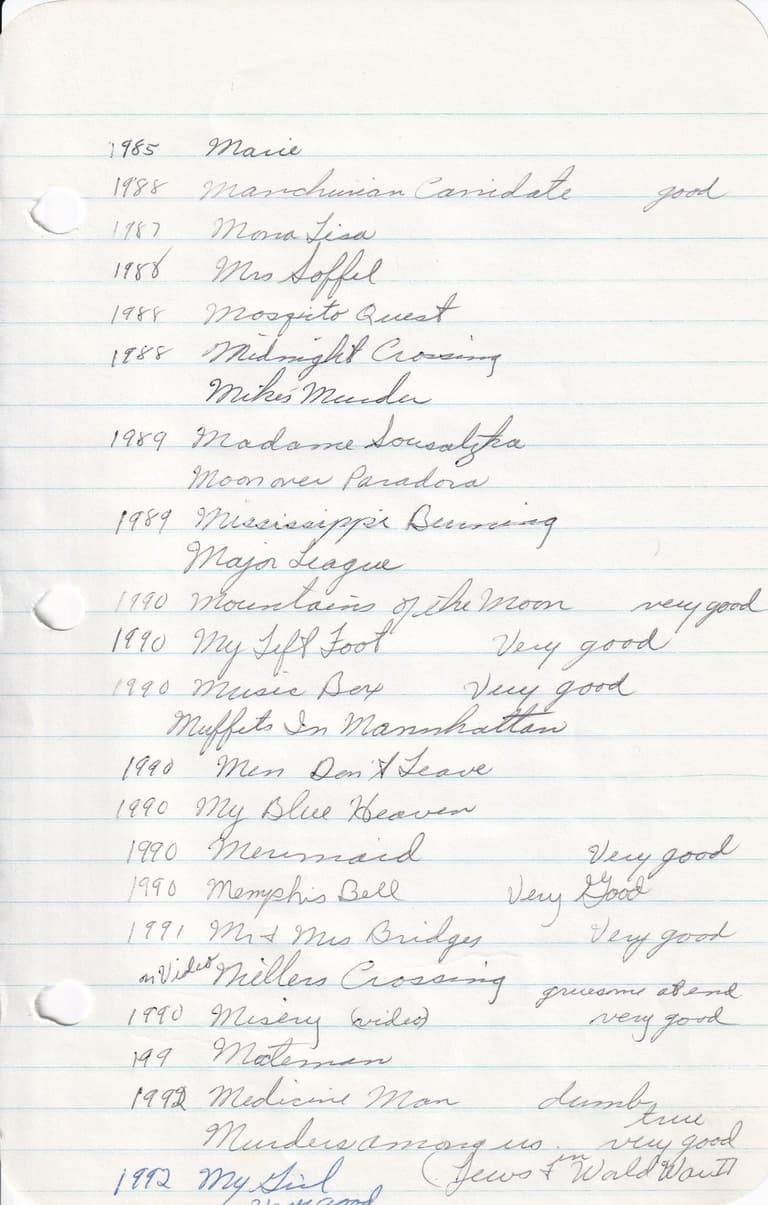 1985 Marie
1988 Manchurian Canidate good
1987 Mona Lisa
1988 Mrs Soffel
1988 Mosqito Quest
1988 Midnight Crossing
Mikes Murder
1989 Madame Sousatzka
Moon over Paradora
1989 Mississippi Burning
Major League
1990 Mountains of the Moon very good
1990 My Left Foot Very good
1990 Music Box Very good
Muffets In Mannhattan
1990 Men Don't Leave
1990 My Blue Heaven
1990 Mermaid Very good
1990 Memphis Bell Very Good
1991 Mr & Mrs Bridges Very good
on Video Millers Crossing gruesome at end
1990 Misery (video) very good
199 Mateman
1992 Medicine Man dumb
true
Murders among us. very good
(Jews in World War II
1992 My Girl
Very good